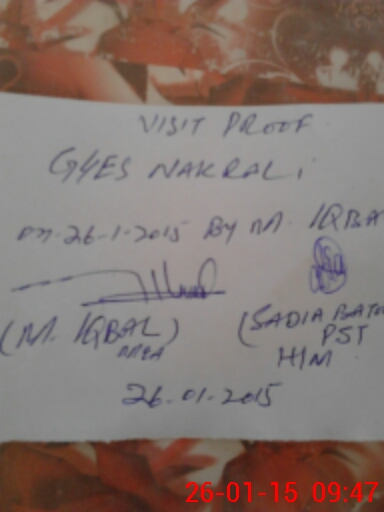 VISIT PROOF
GGES NAKRALI
on 26-1-2015 By M. IQBA
(M. IQBAL)
MEA
(SADIA BATO
PST
H/M
26-01-2015
26-01-15 09:47